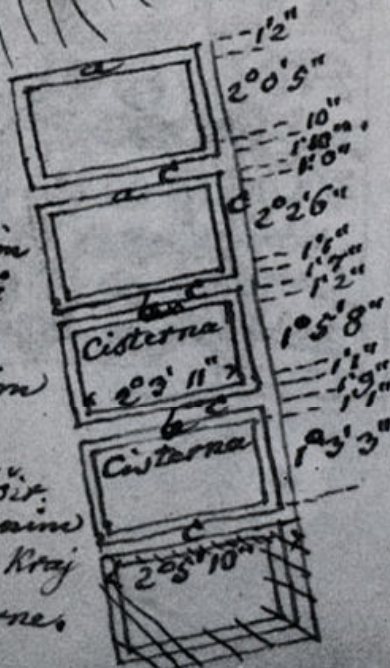 1'2"
a
2°0'5"
10"
1'10"
1'0"
c
a
c
2°2'6"
1'1"
1'7"
1'2"
b c
Cisterna
1°5'8"
2°3'11"
1'1"
1'9"
1'1"
b c
Cisterna
1°3'3"
c
2°5'10"
Kraj